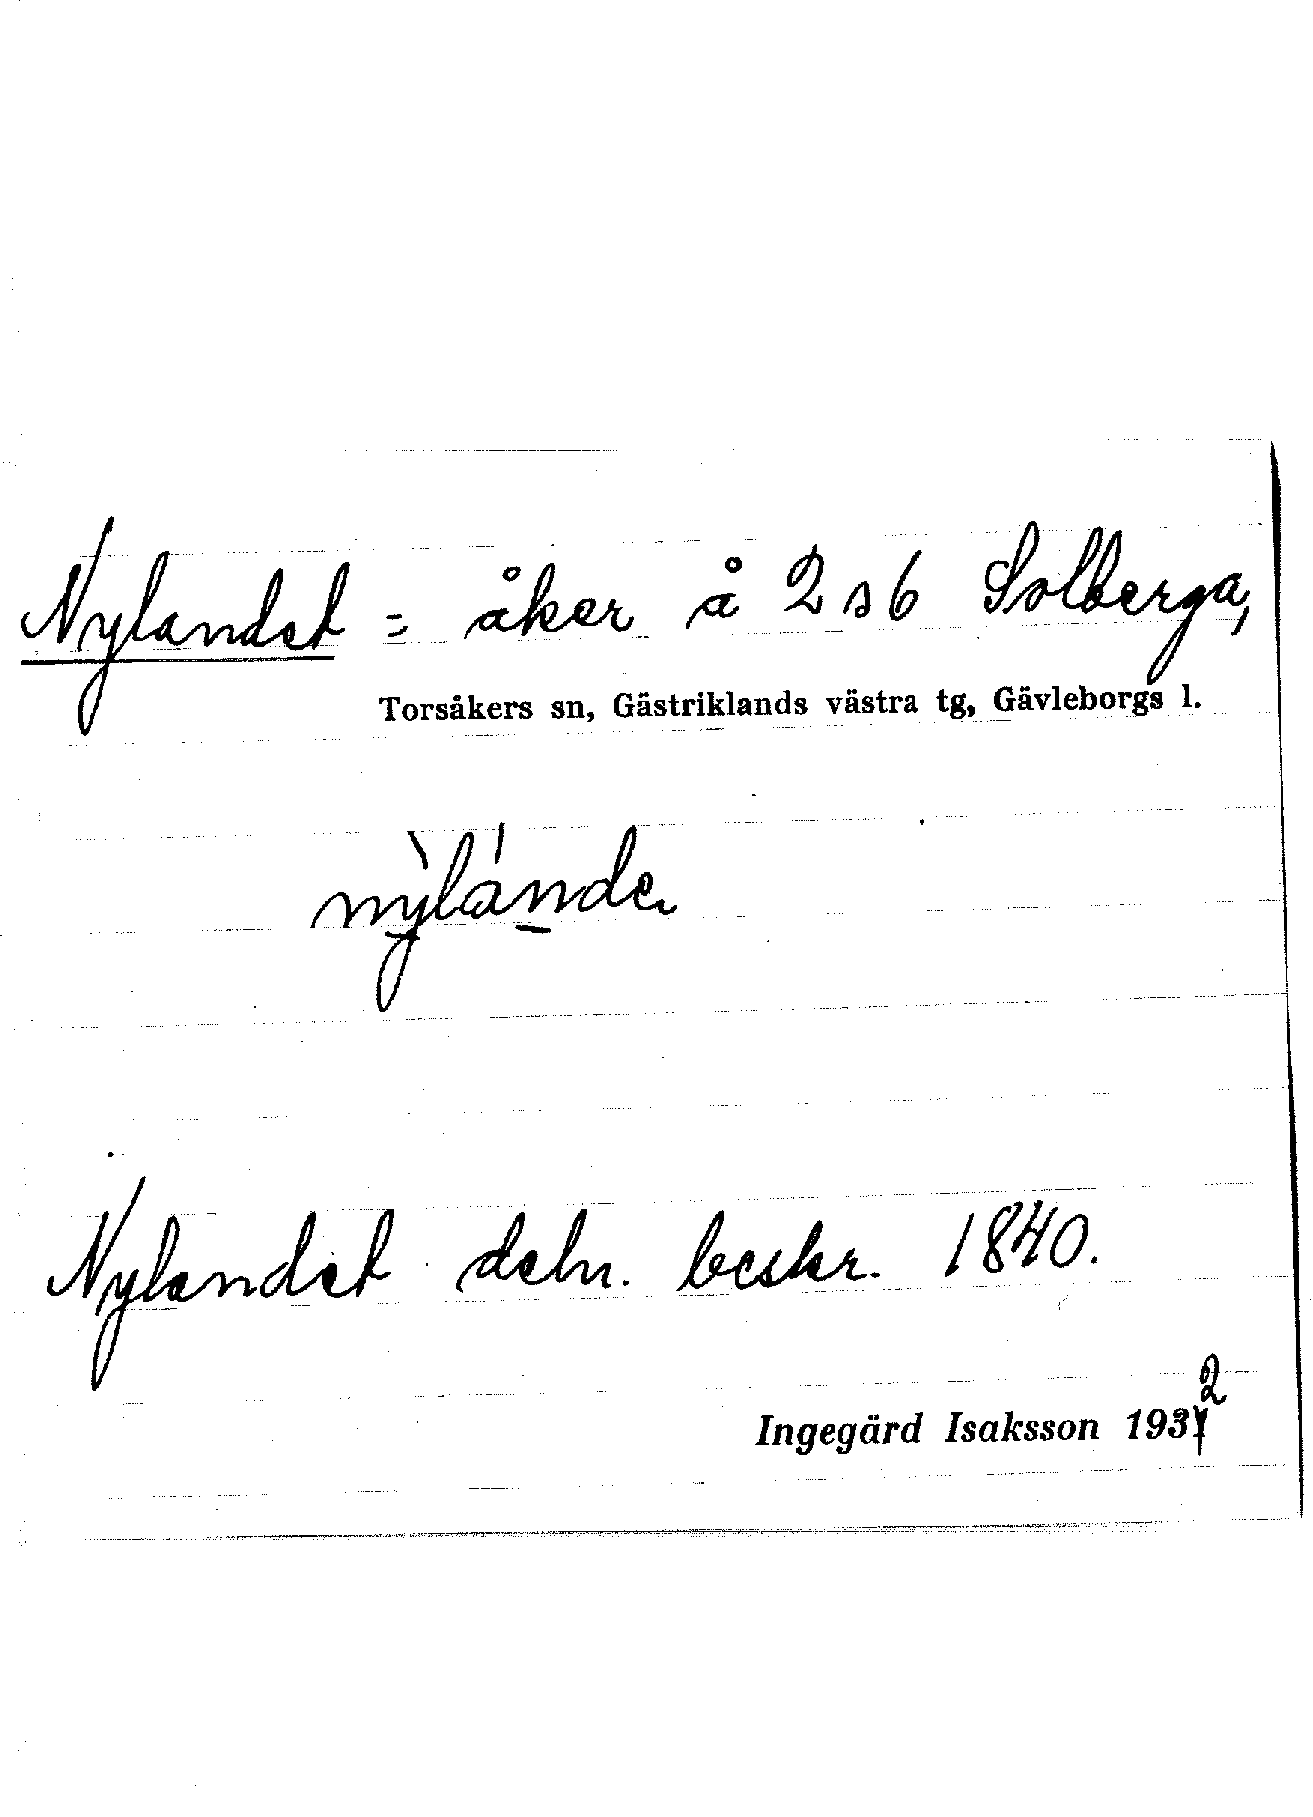 Nylandet = åker å 2 s 6 Solberga,
Torsåkers sn, Gästriklands västra tg, Gävleborgs l.
nỳlánde
Nylandet deln. beskr. 1840.
Ingegärd Isaksson 1932